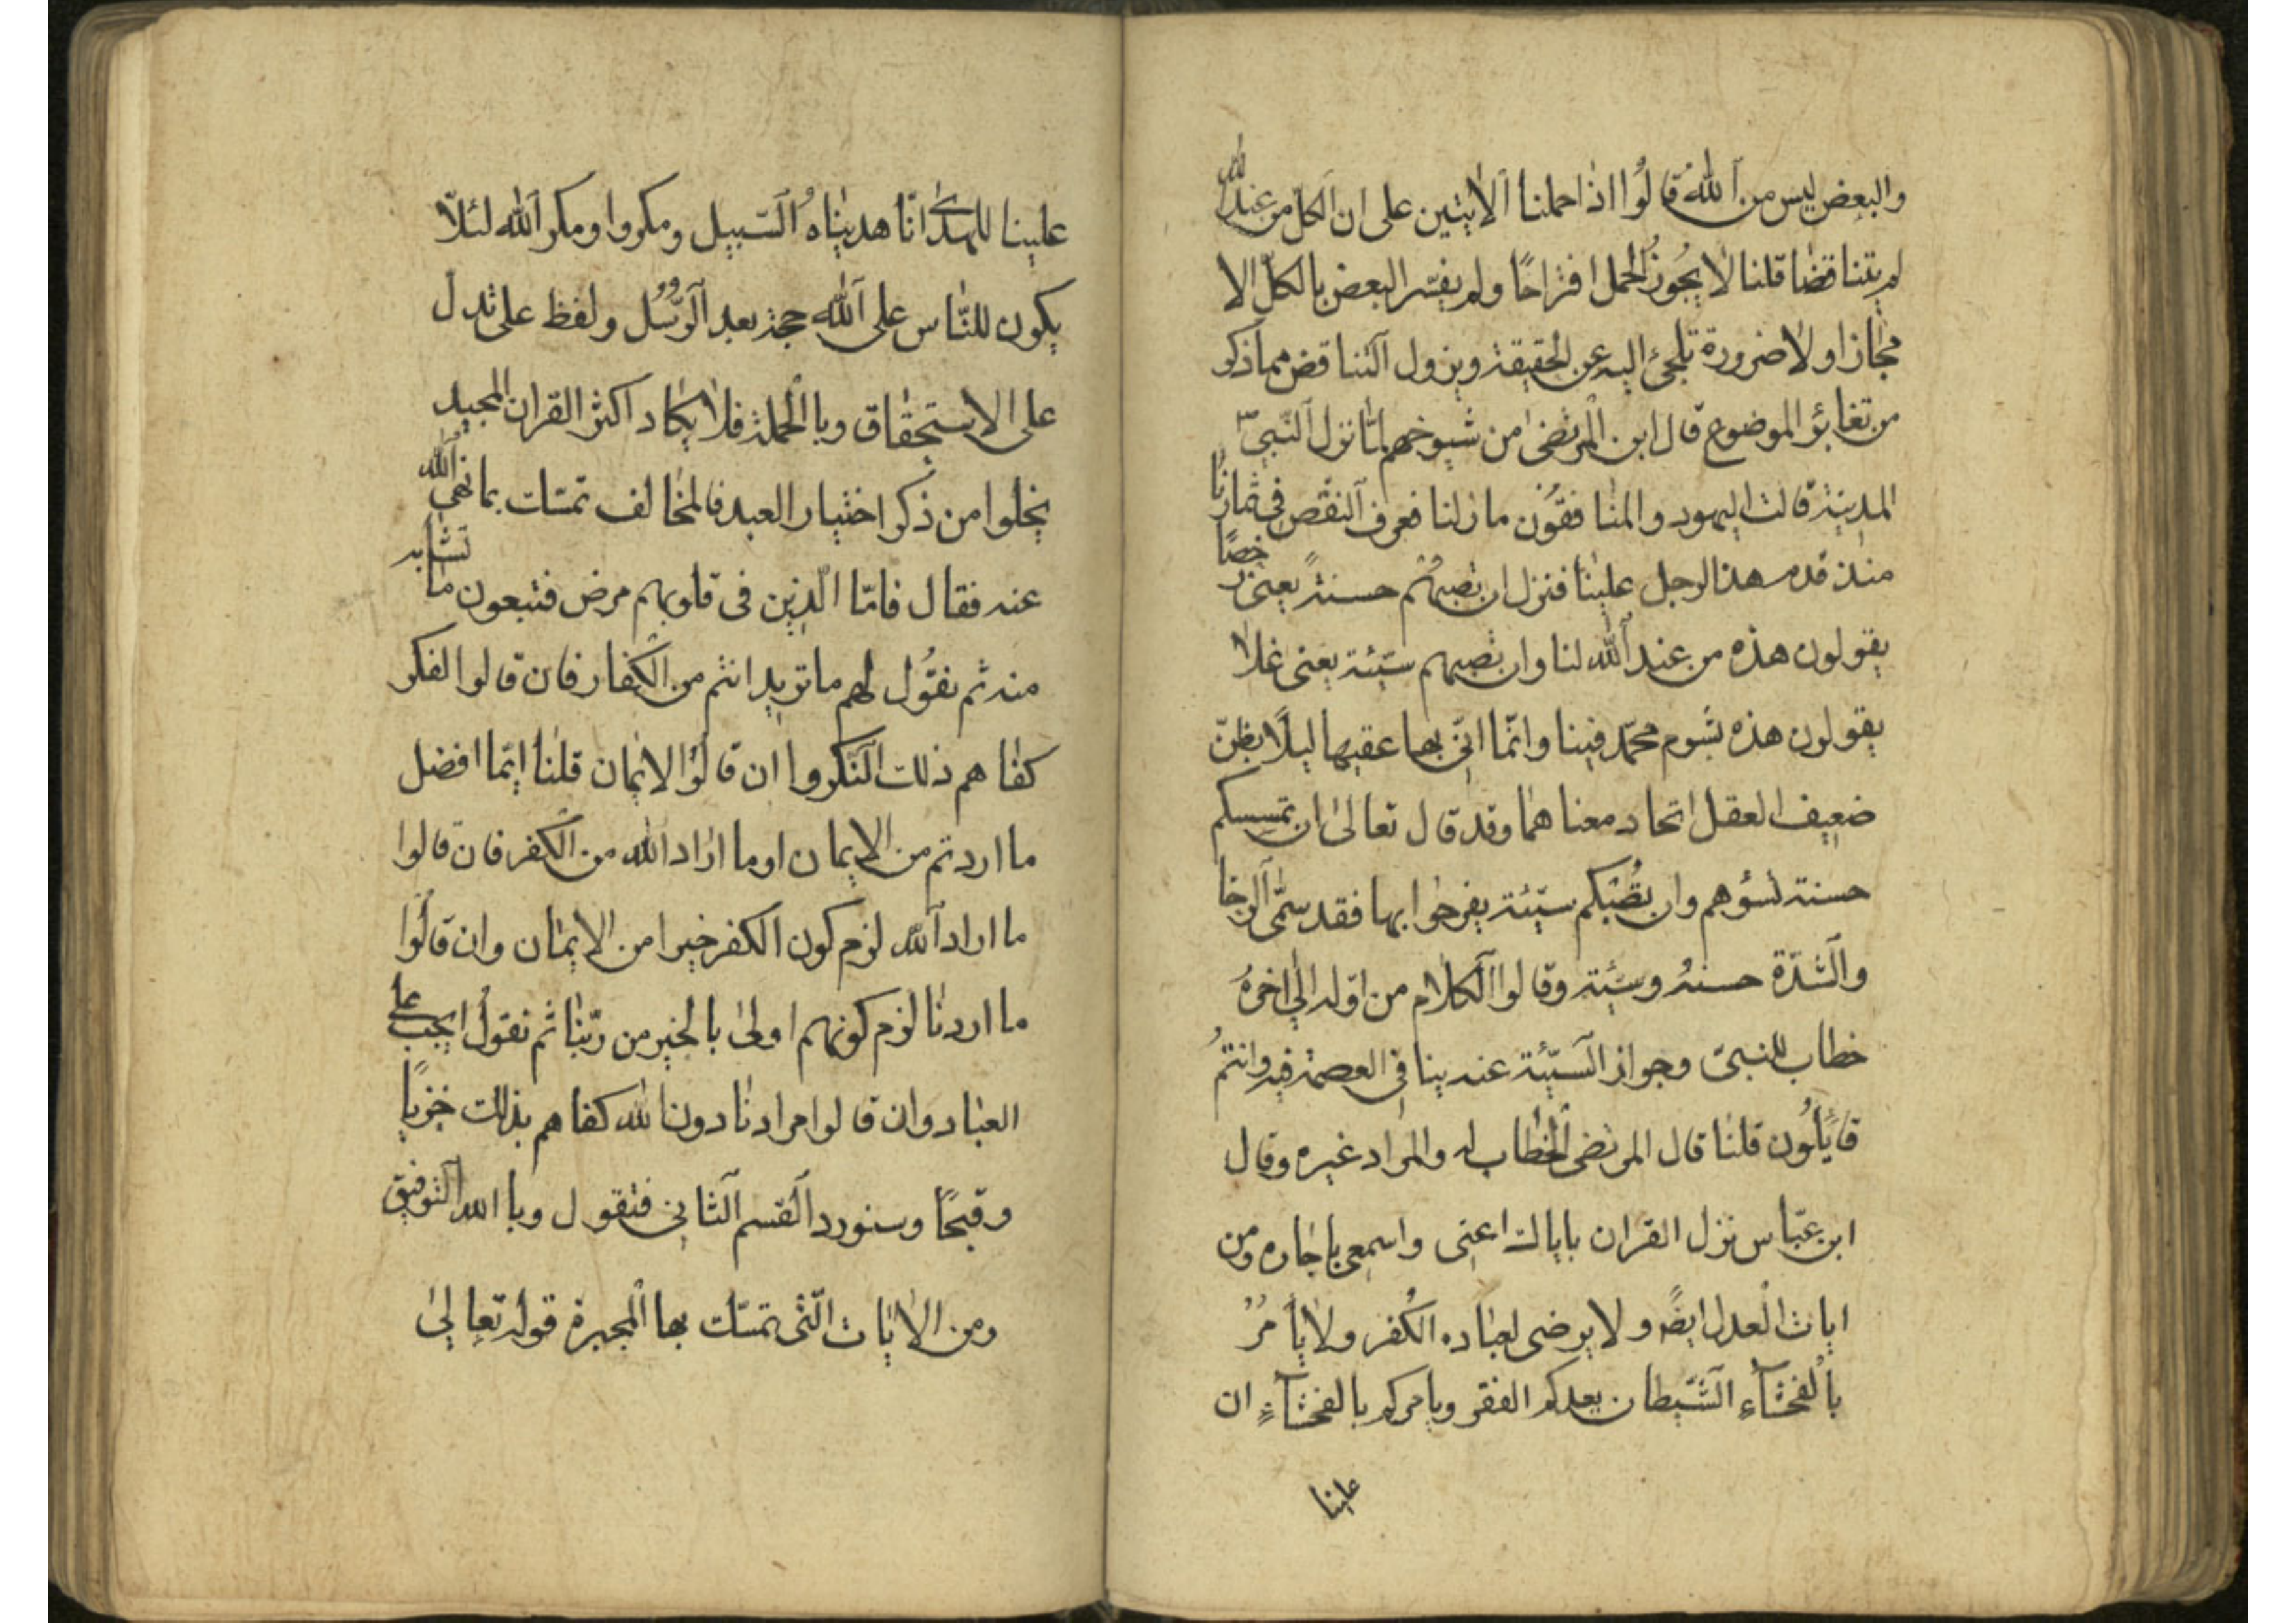 والبعض ليس من الله قالوا اذا حملنا الايتين على ان الكل من عند الله
لم يتناقضا قلنا لا يجوز الحمل اقتراحًا ولم يفسّر البعض بالكلّ الا
مجازا ولا ضرورة تلجئ اليه عن الحقيقة ويزول التناقض مما ذكر
من تغائر الموضوع قال ابن المرتضى من شيوخهم لمّا نزل النّبيّ
المدينة قالت اليهود والمنافقون ما زلنا نعرف النقص في ثمارنا
منذ قدم هذا الرجل علينا فنزل ان تصبهم حسنة يعنى رخصًا
يقولون هذه من عند الله لنا وان تصبهم سيّئة يعنى غلا
يقولون هذه بشوم محمّد فينا وانّما اتى بهما عقبها ليلًا يظنّ
ضعيف العقل اتحاد معناهما وقد قال تعالى ان تمسسكم
حسنة تسؤهم وان تصبكم سيّئة يفرحوا بها فقد سمّى الرخا
والشدّة حسنة وسيّئة وقالوا الكلام من اوّله الى اخره
خطاب للنبىّ وجواز السيّئة عنه ينافى العصمة فيه وانتم
قائلون قلنا قال المرتضى الخطاب له والمراد غيره وقال
ابن عبّاس نزل القران باياك اعنى واسمعى يا جاره ومن
ايات العدل ايضًا ولا يرضى لعباده الكفر ولا يأمر
بالفحشآءِ الشّيطان يعدكم الفقر ويامركم بالفحشآءِ ان
علينا
علينا للهدى انّا هديناه السّبيل ومكروا ومكر الله لئلّا
يكون للنّاس على الله حجة بعد الرّسل ولفظ على تدل
على الاستحقاق وبالجملة فلا يكاد اكثر القران المجيد
يخلوا من ذكر اختيار العبد فالمخالف تمسّك بما نهى الله
عنه فقال فامّا الّذين فى قلوبهم مرض فتبعون ما تشابه
منه ثم نقول لهم ما تريد انتم من الكفار فان قالوا الفكر
كفاهم ذلك النكروا ان قالوا الايمان قلنا ايّما افضل
ما اردتم من الايمان او ما اراد الله من الكفر فان قالوا
ما اراد الله لزم كون الكفر خيرا من الايمان وان قالوا
ما اردنا لزم كونهم اولى بالخير من ربّنا ثم نقول ايجب على
العباد وان قالوا مرادنا دون الله كفاهم بذلك خزيًا
وقبحًا وسنورد القسم الثانى فتقول وبا الله التوفيق
ومن الايات الّتى تمسّك بها المجبرة قوله تعالى